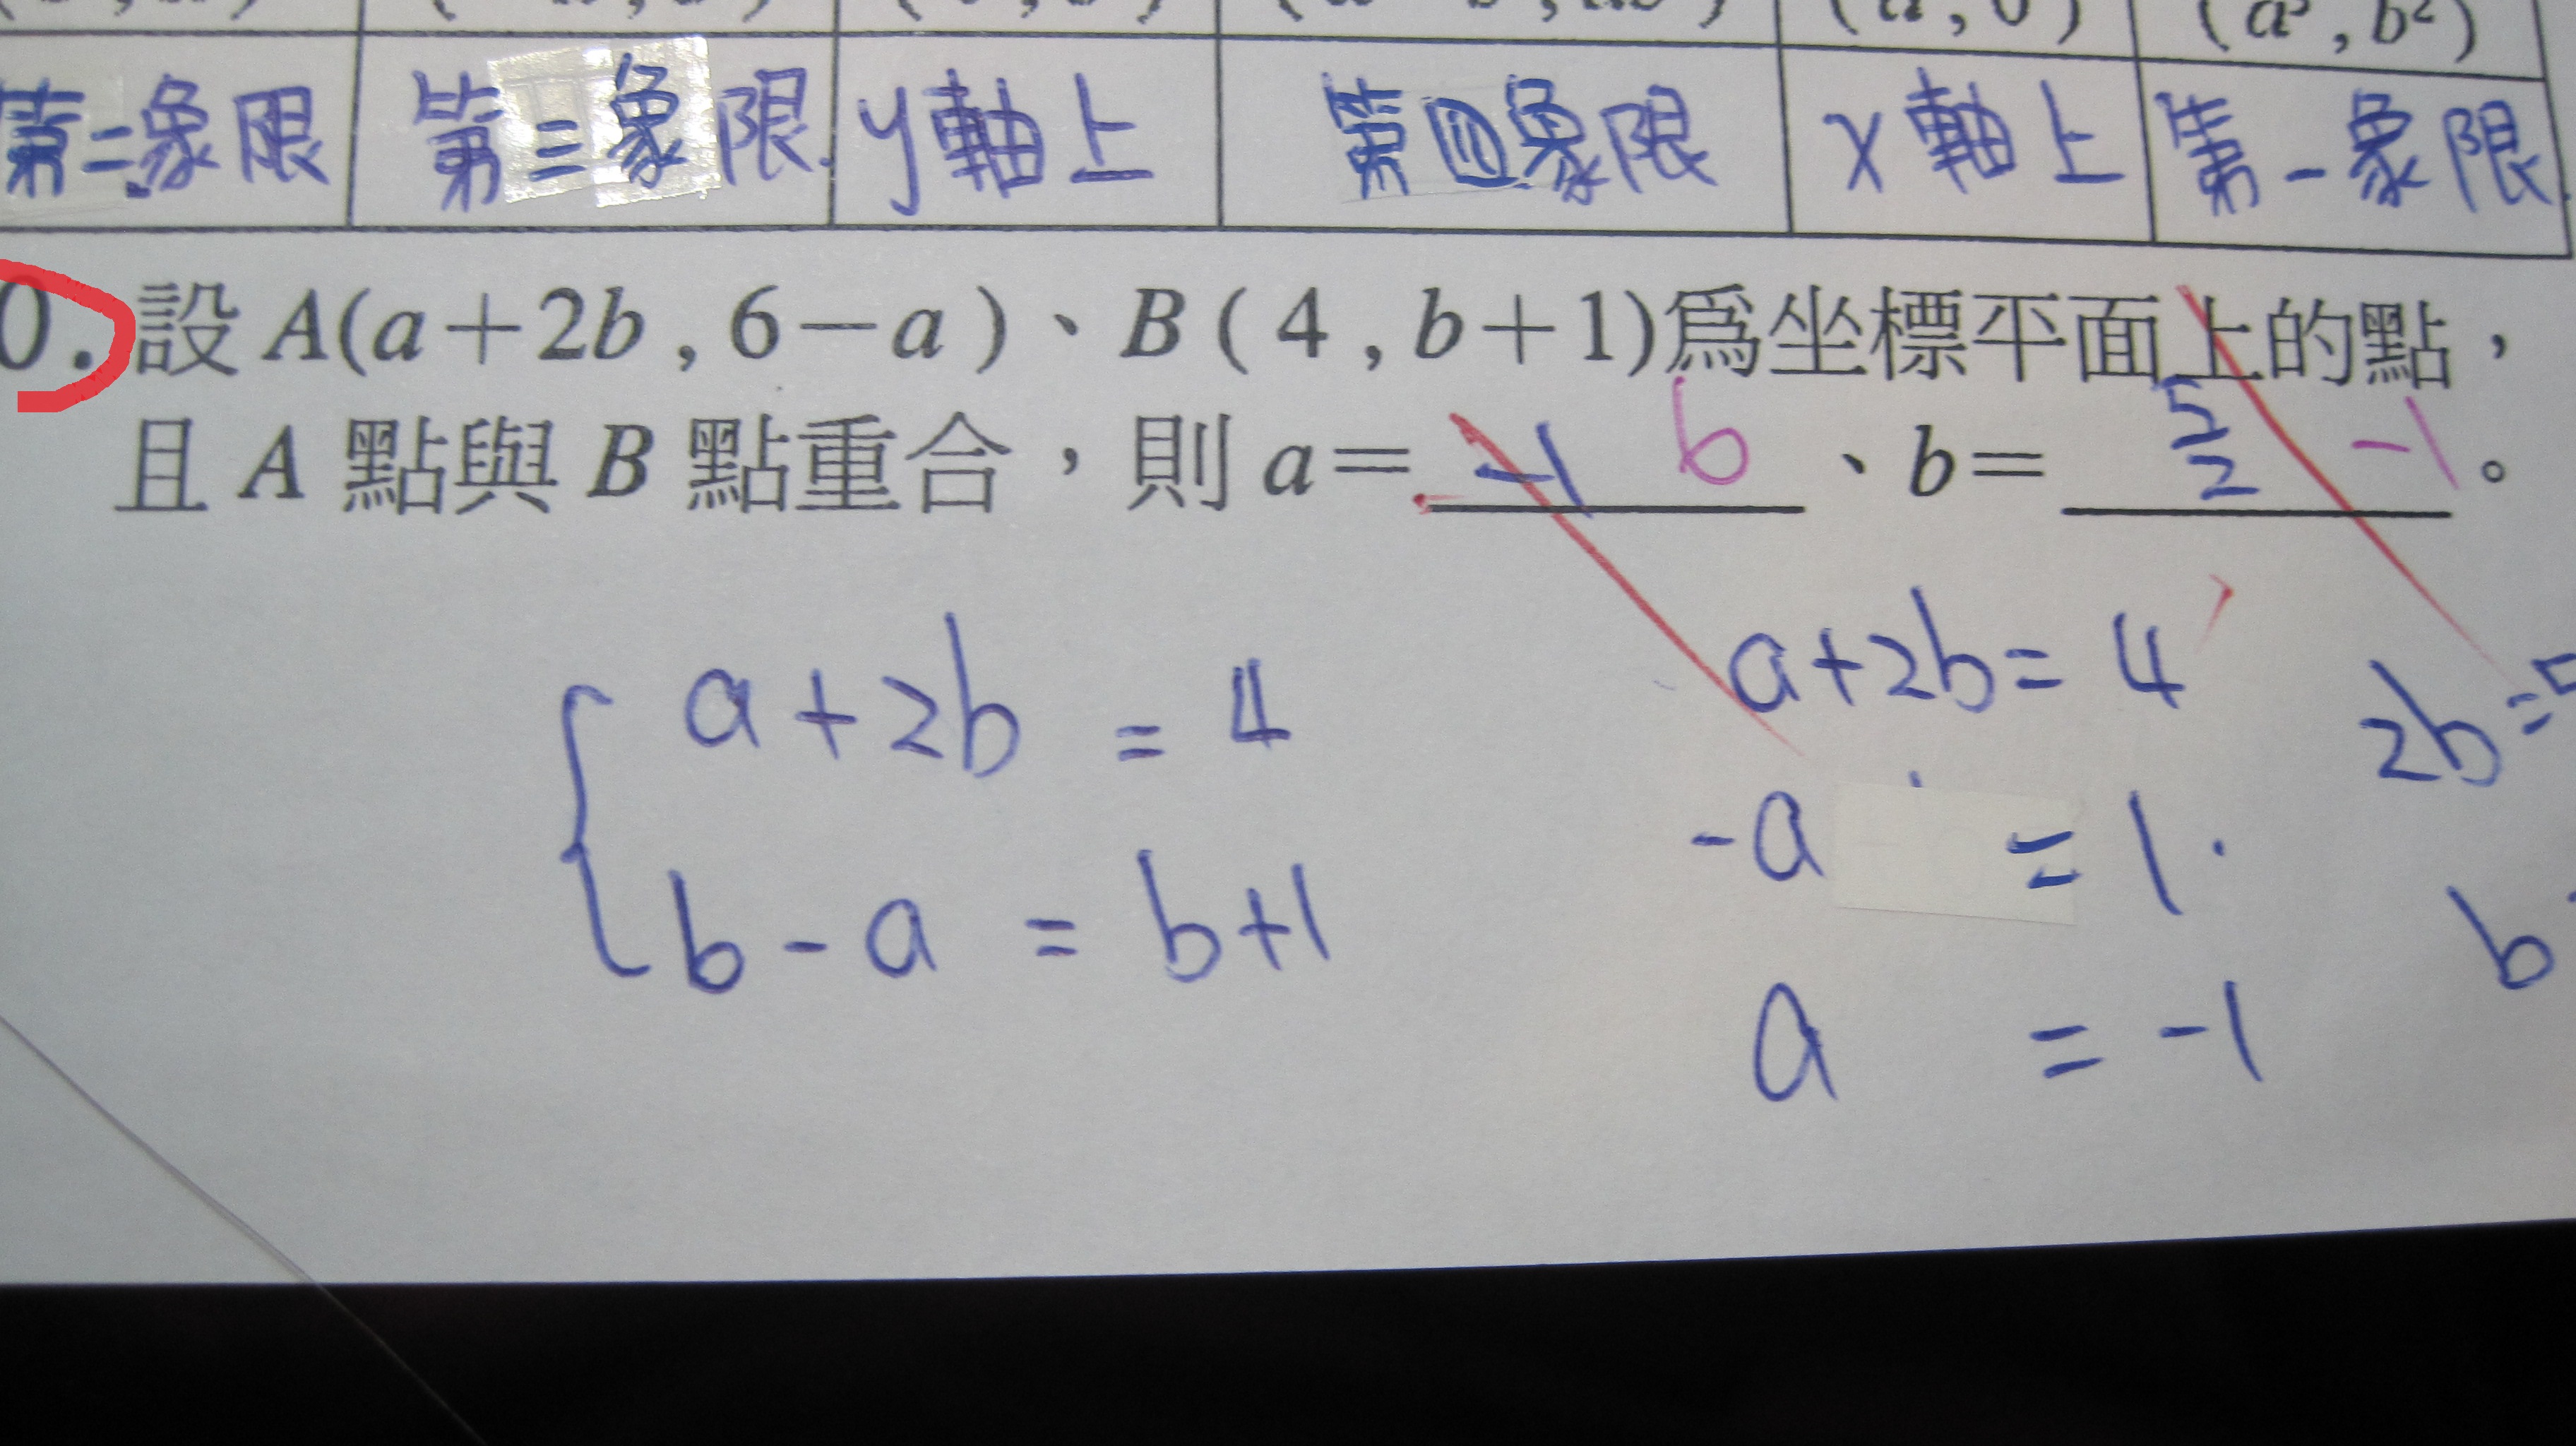 (a³, b²)
第二象限 第三象限 y軸上 第四象限 x軸上 第一象限
0. 設A(a+2b, 6-a)、B(4, b+1)爲坐標平面上的點，
且A點與B點重合，則a= -1 6 、b= 5/2 -1 。
a+2b = 4
b-a = b+1
a+2b = 4
-a = 1
a = -1
2b=5
b